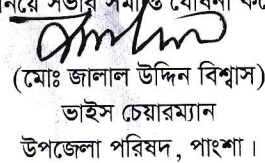 (মোঃ জালাল উদ্দিন বিশ্বাস)
ভাইস চেয়ারম্যান
উপজেলা পরিষদ, পাংশা।